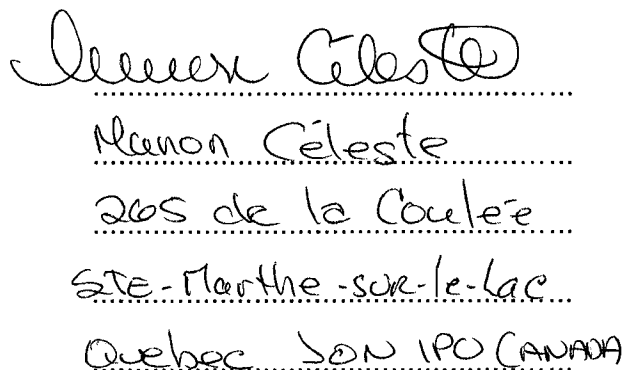 Manon Céleste
Manon Céleste
265 de la Coulée
STE-Marthe-sur-le-Lac
Quebec J0N 1P0 CANADA